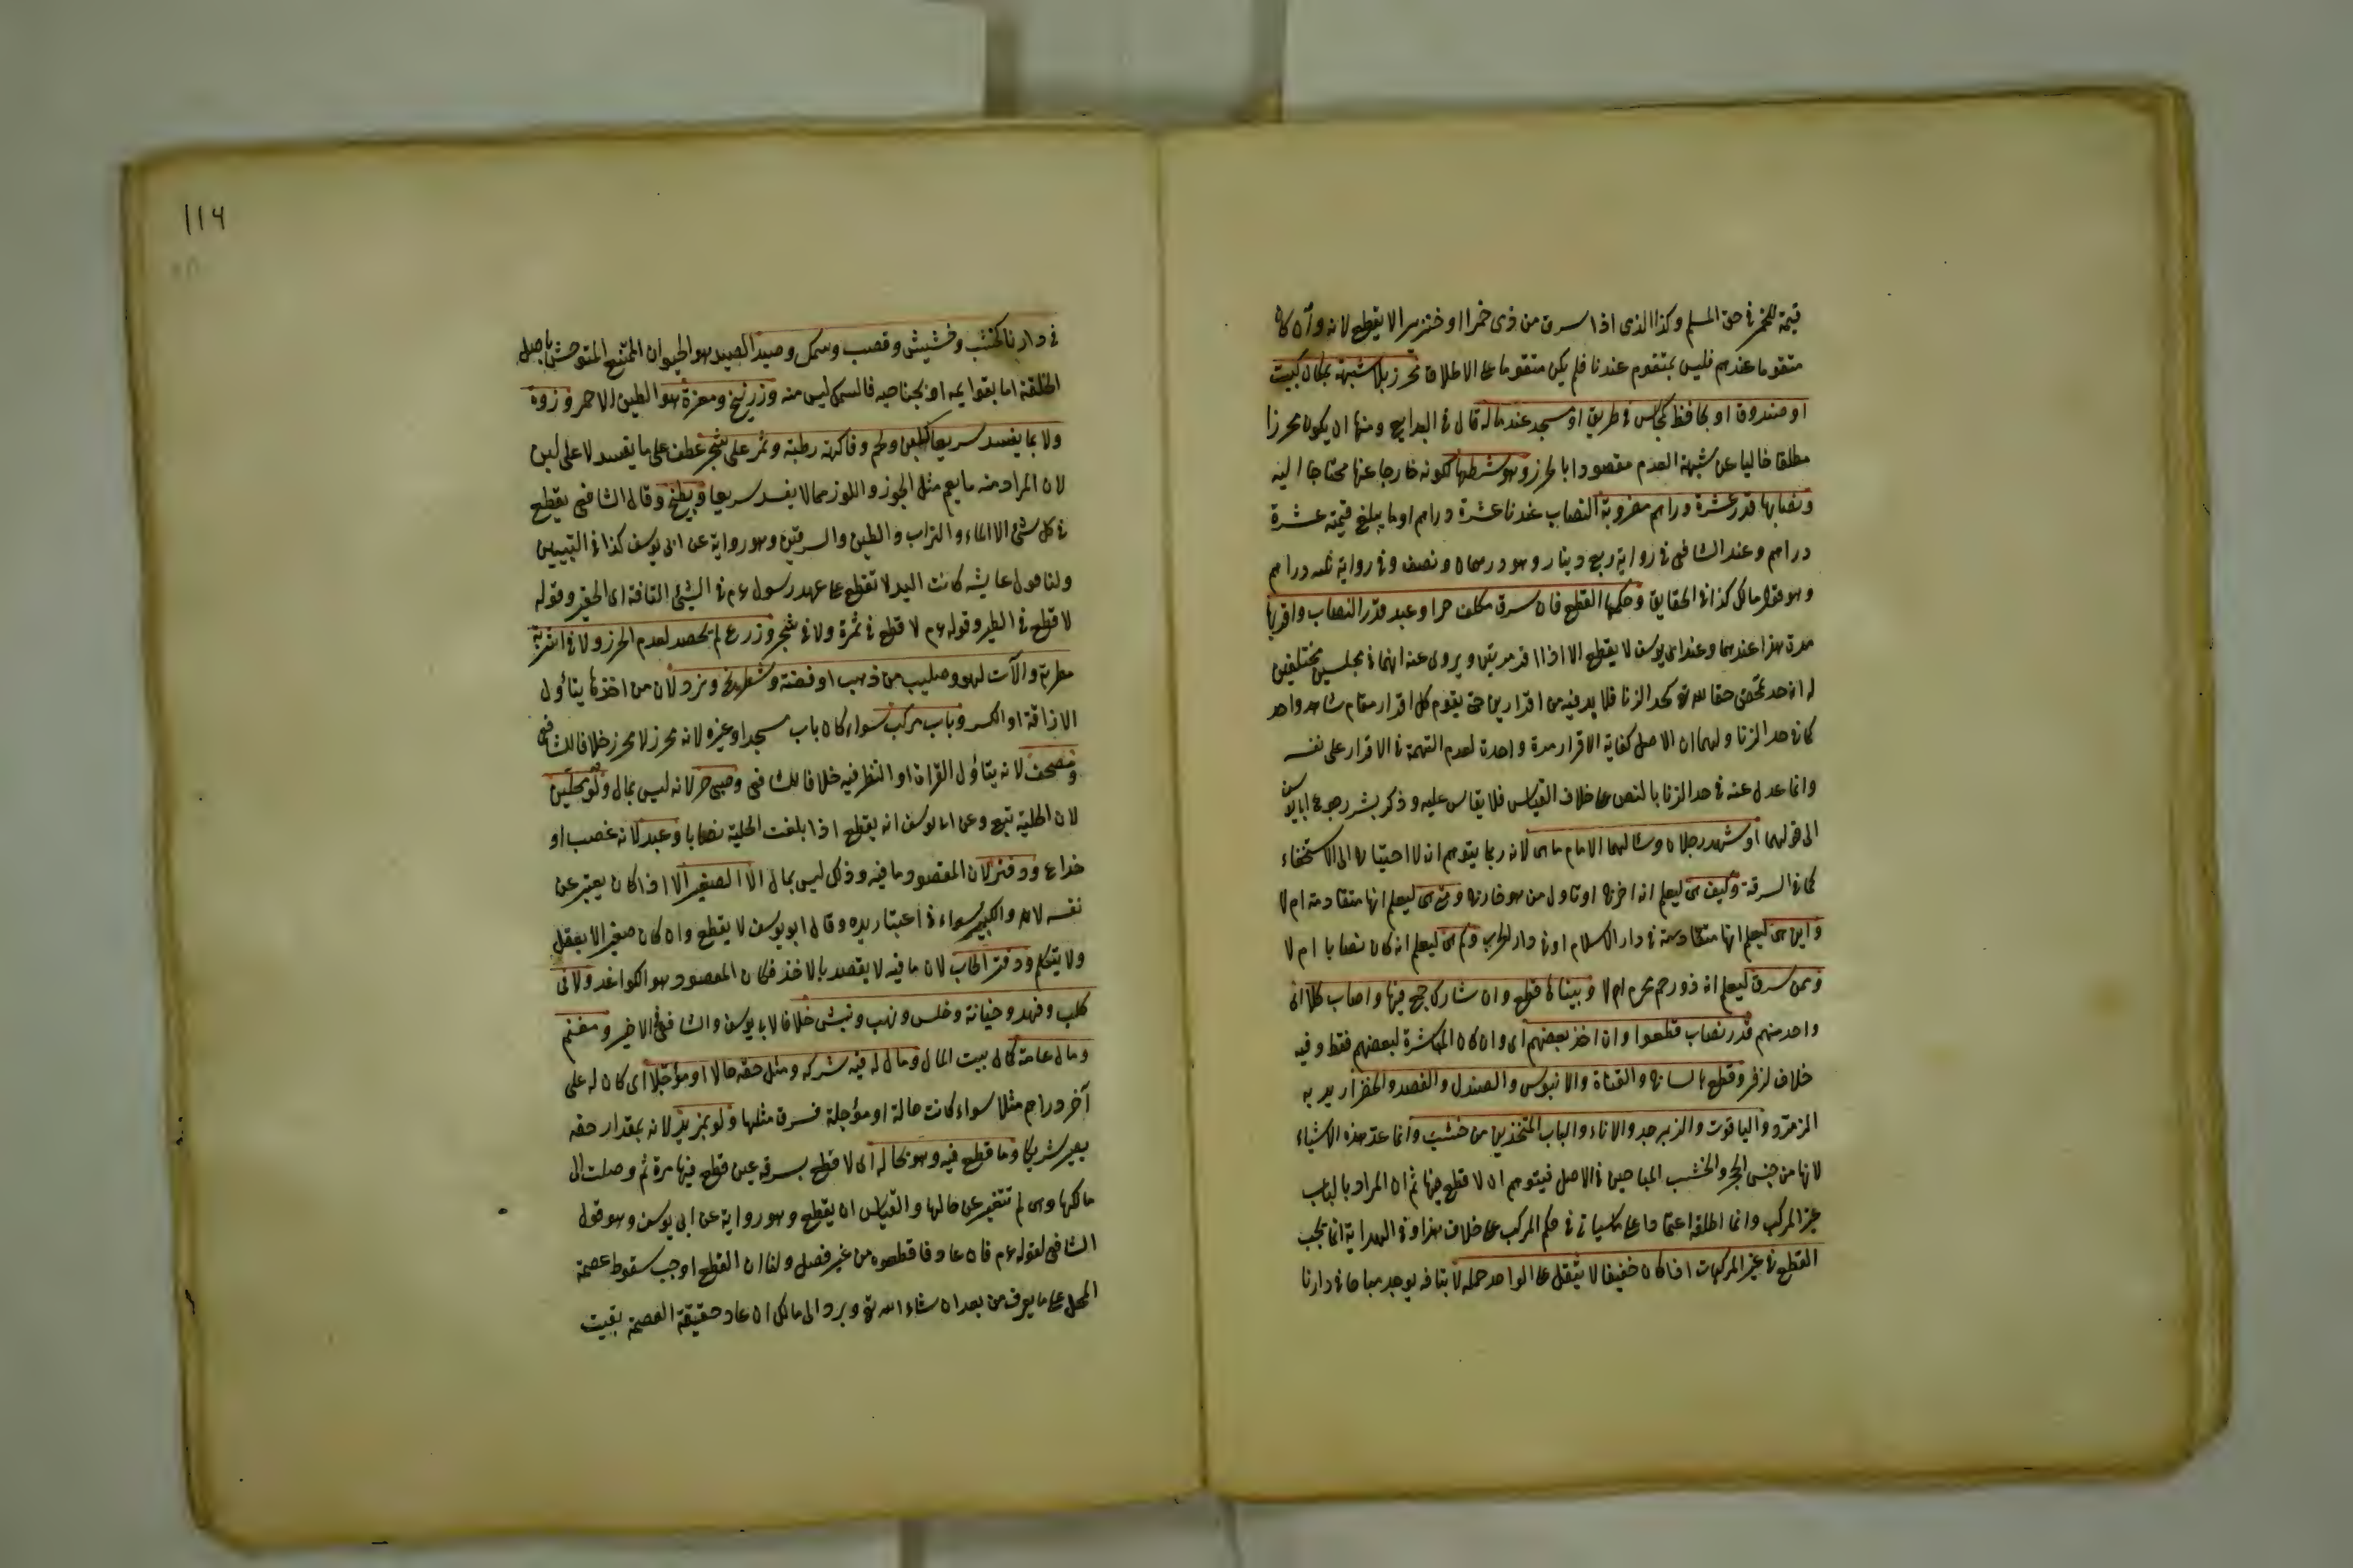 قيمة للخمر في حق المسلم وكذا الذي اذا سرق من ذمي خمرا او خنزيرا لا يقطع لانه وان كان
متقوما عندهم فليس بمتقوم عندنا فلم يكن متقوما على الاطلاق محرز بلا شبهة بمكان كبيت
او صندوق او بحافظ كجالس في طريق او مسجد عند ماله قال في البدايع ومنها ان يكون محرزا
مطلقا خاليا عن شبهة العدم مقصودا بالحرز وهو شرطها لكونه خارجا عنها محتاجا اليه
ونصابها قدر عشرة دراهم مضروبة النصاب عندنا عشرة دراهم او ما يبلغ قيمته عشرة
دراهم وعند الشافعي في رواية ربع دينار وهو درهمان ونصف وفي رواية ثلثه دراهم
وهو قول مالك كذا في الحقايق وحكمها القطع فان سرق مكلف حر او عبد قدر النصاب واقر بها
مرة هذا عندهما وعند ابي يوسف لا يقطع الا اذا اقر مرتين ويروى عنه انهما في مجلسين مختلفين
له انه حد محض حقا لله تع كحد الزنا فلا بد فيه من اقرارين حتى يقوم كل اقرار مقام شاهد واحد
كما في حد الزنا ولهما ان الاصل كفاية الاقرار مرة واحدة لعدم التهمة في الاقرار على نفسه
وانما عدل عنه في حد الزنا بالنص على خلاف القياس فلا يقاس عليه وذكر بشر رجوع ابي يوسف
الى قولهما او شهد رجلان وسالهما الامام ما هي لانه ربما يتوهم ان لا احتياج الى الاستخفاء
كما في السرقة وكيف هي ليعلم انه اخرج او ناول من هو خارج ومتى هي ليعلم انها متقادمة ام لا
واين هي ليعلم انها متقادمة في دار الاسلام او في دار الحرب وكم هي ليعلم انه كان نصابا ام لا
وممن سرق ليعلم انه ذو رحم محرم ام لا وبيناها قطع وان شارك جمع فيها واصاب كلا اى
واحد منهم قدر نصاب قطعوا وان اخذ بعضهم اى وان كان المباشرة لبعضهم فقط وفيه
خلاف لزفر وقطع بالساج والقناة والابنوس والصندل والفصد والخضر اريد به
الزمرد والياقوت والزبرجد والاناء والباب المتخذين من خشب وانما عد هذه الاشياء
لانها من جنس الحجر والخشب المباحين في الاصل فيتوهم ان لا قطع فيها ثم ان المراد بالباب
غير المركب وانما اطلقه اعتمادا على ما سيأتي في حكم المركب على خلاف هذا وفي الهداية انما يجب
القطع في غير المركبات اذا كان خفيفا لا يثقل على الواحد حمله لا بتافه يوجد مباحا في دارنا
١١٦
في دارنا كخشب وحشيش وقصب وسمك وصيد الصيد هو الحيوان الممتنع المتوحش باصل
الخلقة اما بقوايمه او بجناحيه فالسمك ليس منه وزرنيخ ومغرة هو الطين الاحمر ونورة
ولا بما يفسد سريعا كلبن ولحم وفاكهة رطبة وثمر على شجر عطف على ما يفسد لا على لبن
لان المراد منه ما يعم مثل الجوز واللوز مما لا يفسد سريعا وبطيخ وقال الشافعي يقطع
في كل شئ الا الماء والتراب والطين والسرقين وهو رواية عن ابي يوسف كذا في التبيين
ولنا قول عايشه كانت اليد لا تقطع على عهد رسول عم في الشئ التافه اى الحقير وقوله
لا قطع في الطير وقوله عم لا قطع في ثمرة ولا في شجر وزرع لم يحصد لعدم الحرز ولا في اشربة
مطربة والآت لهو وصليب من ذهب او فضة وشطرنج ونرد لان من اخذها يتاول
الاراقة او الكسر وباب مركب سواء كان باب مسجد او غيره لانه محرز لا محرز خلافا للشافعي
ومصحف لانه يتاول القراة او النظر فيه خلافا للشافعي وصبي حر لانه ليس بمال ولو محليين
لان الحلية تبع وعن ابي يوسف انه يقطع اذا بلغت الحلية نصابا وعبد لانه غصب او
خداع ودفتر لان المقصود ما فيه وذلك ليس بمال الا الصغير الا اذا كان يعبر عن
نفسه لانه والكبير سواء في اعتبار يده وقال ابو يوسف لا يقطع وان كان صغيرا لا يعقل
ولا يتكلم ودفتر الحساب لان ما فيه لا يقصد بالاخذ فكان المقصود هو الكواغد ولا في
كلب وفهد وخيانة وخلس ونهب ونبش خلافا لابي يوسف والشافعي في الاخير ومغنم
ومال عامة كمال بيت المال ومال له فيه شركه ومثل حقه حالا او مؤجلا اى كان له على
آخر دراهم مثلا سواء كانت حالة او مؤجلة فسرق مثلها ولو بمزيد لانه بمقدار حقه
يصير شريكا وما قطع فيه وهو بحاله اى لا قطع بسرقه عين قطع فيها مرة ثم وصلت الى
مالكها وهي لم تتغير عن حالها والقياس ان يقطع وهو رواية عن ابي يوسف وهو قول
الشافعي لقوله عم فان عاد فاقطعوه من غير فصل ولنا ان القطع اوجب سقوط عصمة
المحل على ما يعرف من بعد ان شاء الله تع وبرد الى مالك ان عاد حقيقة العصمة بقيت